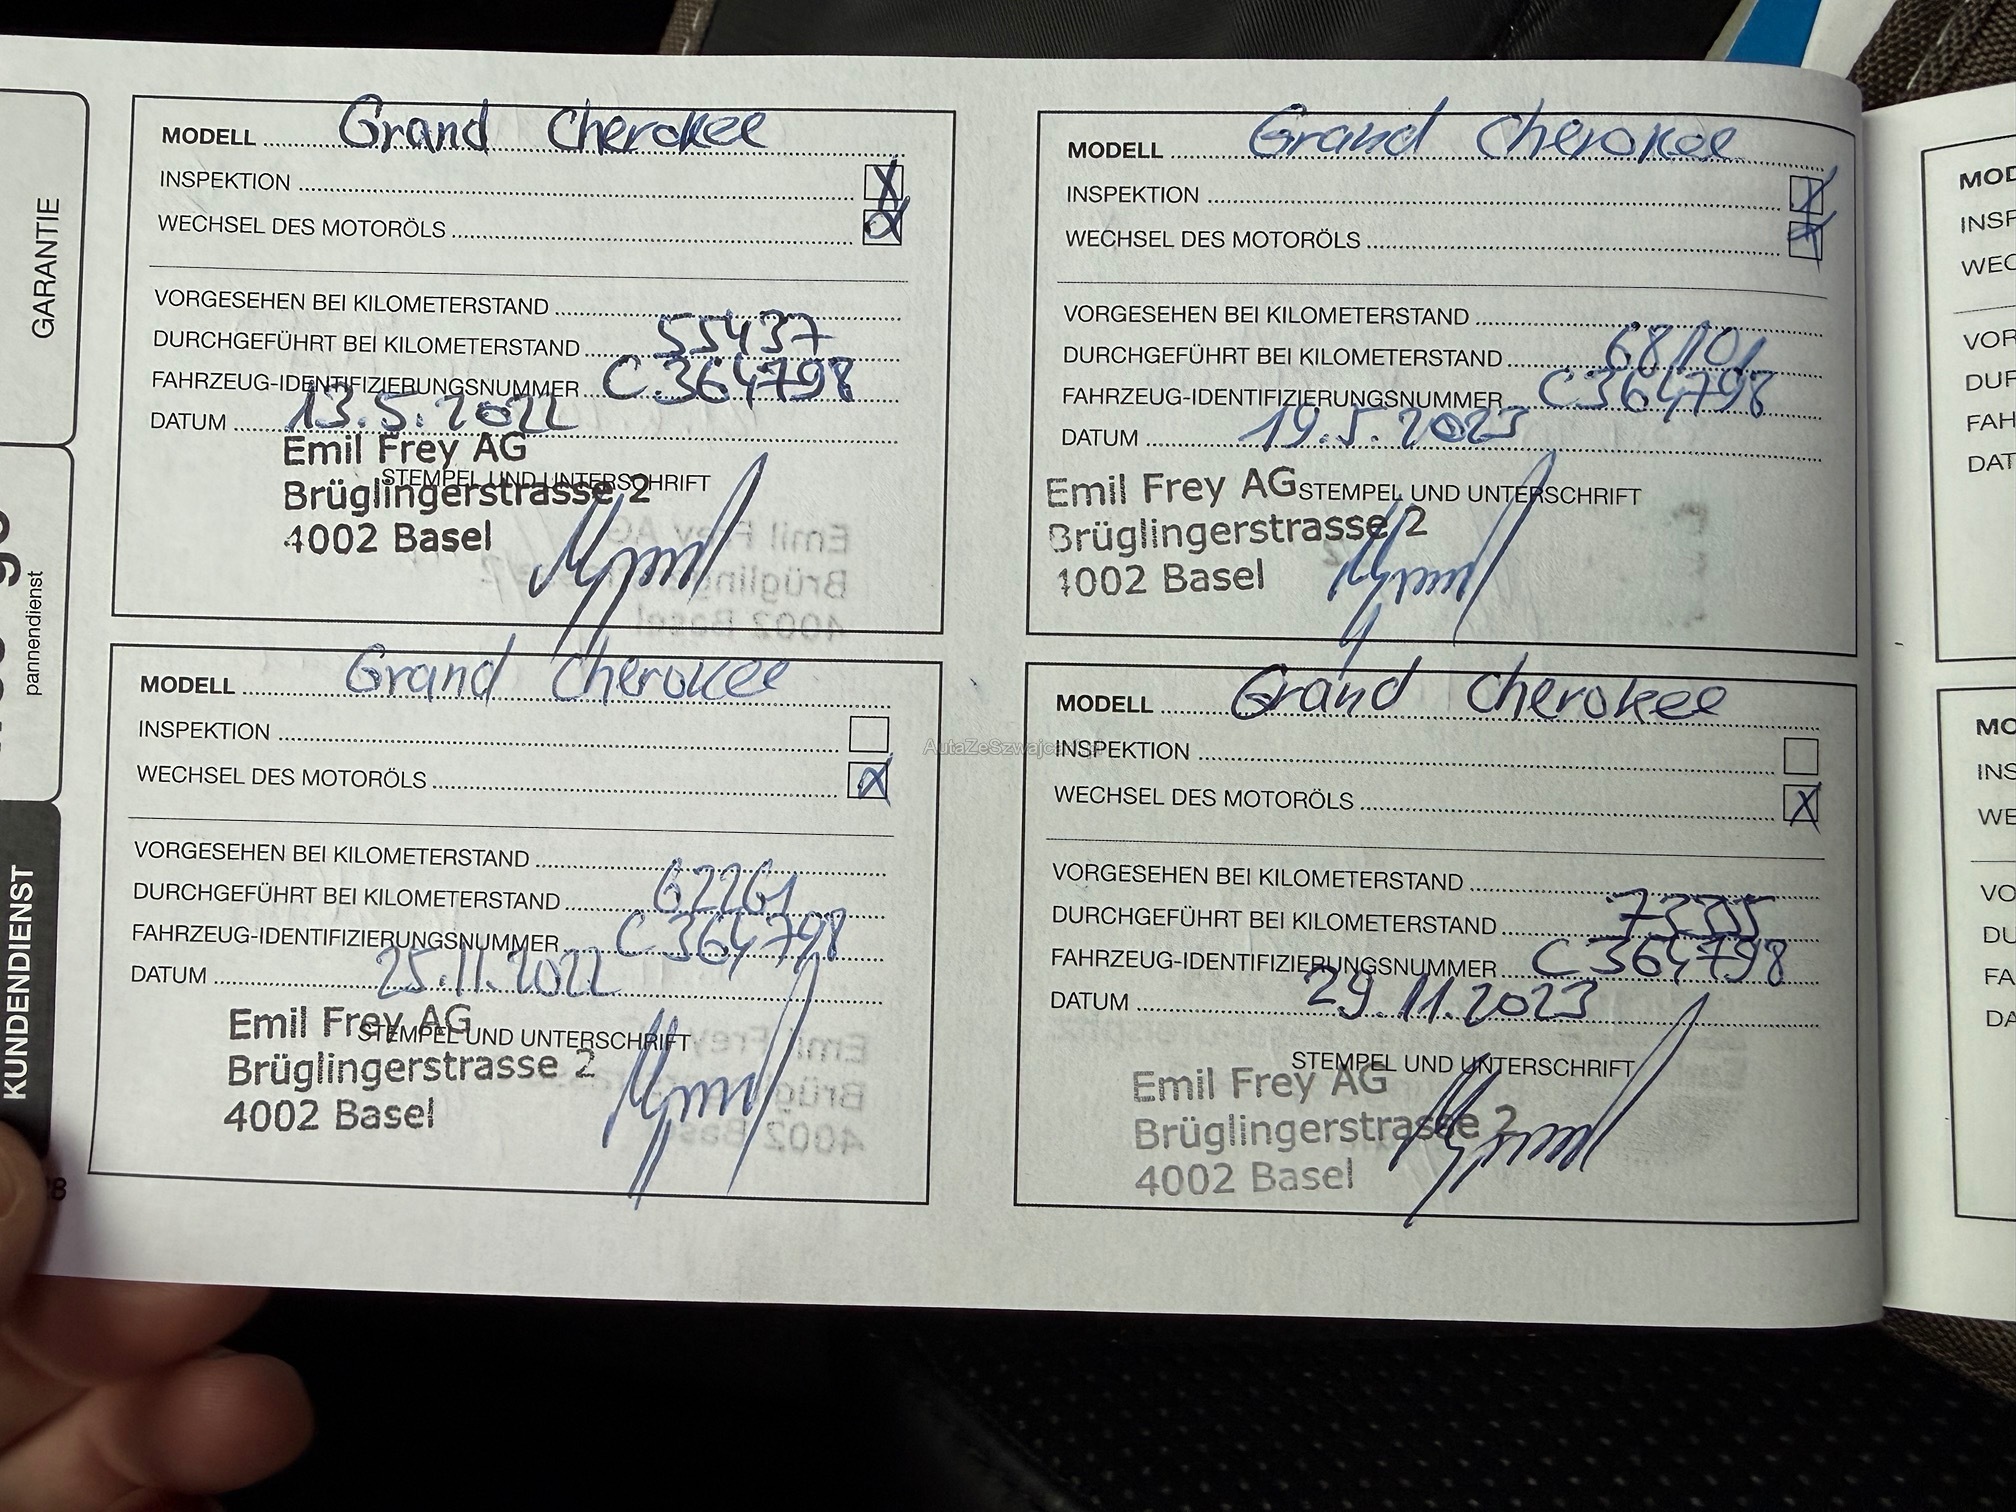 GARANTIE
pannendienst
KUNDENDIENST
MODELL Grand Cherokee
INSPEKTION X
WECHSEL DES MOTORÖLS X
VORGESEHEN BEI KILOMETERSTAND
DURCHGEFÜHRT BEI KILOMETERSTAND 55437
FAHRZEUG-IDENTIFIZIERUNGSNUMMER C364798
DATUM 13.5.2022
STEMPEL UND UNTERSCHRIFT
Emil Frey AG
Brüglingerstrasse 2
4002 Basel
MODELL Grand Cherokee
INSPEKTION
WECHSEL DES MOTORÖLS X
VORGESEHEN BEI KILOMETERSTAND
DURCHGEFÜHRT BEI KILOMETERSTAND 62261
FAHRZEUG-IDENTIFIZIERUNGSNUMMER C364798
DATUM 25.11.2022
STEMPEL UND UNTERSCHRIFT
Emil Frey AG
Brüglingerstrasse 2
4002 Basel
MODELL Grand Cherokee
INSPEKTION X
WECHSEL DES MOTORÖLS X
VORGESEHEN BEI KILOMETERSTAND
DURCHGEFÜHRT BEI KILOMETERSTAND 68101
FAHRZEUG-IDENTIFIZIERUNGSNUMMER C364798
DATUM 19.5.2023
STEMPEL UND UNTERSCHRIFT
Emil Frey AG
Brüglingerstrasse 2
4002 Basel
MODELL Grand Cherokee
INSPEKTION
WECHSEL DES MOTORÖLS X
VORGESEHEN BEI KILOMETERSTAND
DURCHGEFÜHRT BEI KILOMETERSTAND
FAHRZEUG-IDENTIFIZIERUNGSNUMMER C364798
DATUM 29.11.2023
STEMPEL UND UNTERSCHRIFT
Emil Frey AG
Brüglingerstrasse 2
4002 Basel